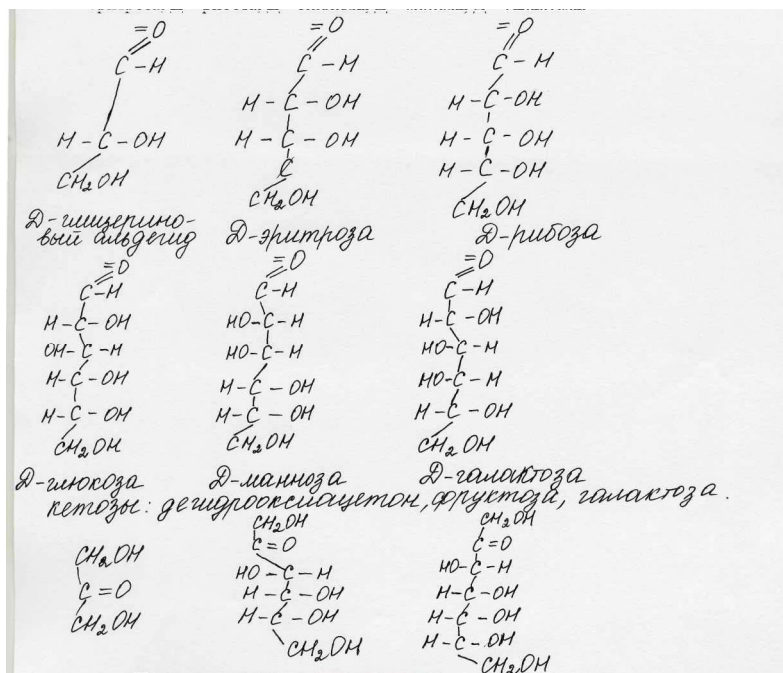 =O =O =O
C-H C-H C-H
H-C-OH H-C-OH
H-C-OH H-C-OH H-C-OH
CH2OH C H-C-OH
CH2OH CH2OH
Д-глицерино-
вый альдегид Д-эритроза Д-рибоза
=O =O =O
C-H C-H C-H
H-C-OH HO-C-H H-C-OH
OH-C-H HO-C-H HO-C-H
H-C-OH H-C-OH HO-C-H
H-C-OH H-C-OH H-C-OH
CH2OH CH2OH CH2OH
Д-глюкоза Д-манноза Д-галактоза
кетозы: дегидрооксиацетон, фруктоза, галактоза.
CH2OH CH2OH CH2OH
C=O C=O C=O
CH2OH HO-C-H HO-C-H
H-C-OH H-C-OH
H-C-OH H-C-OH
CH2OH H-C-OH
CH2OH